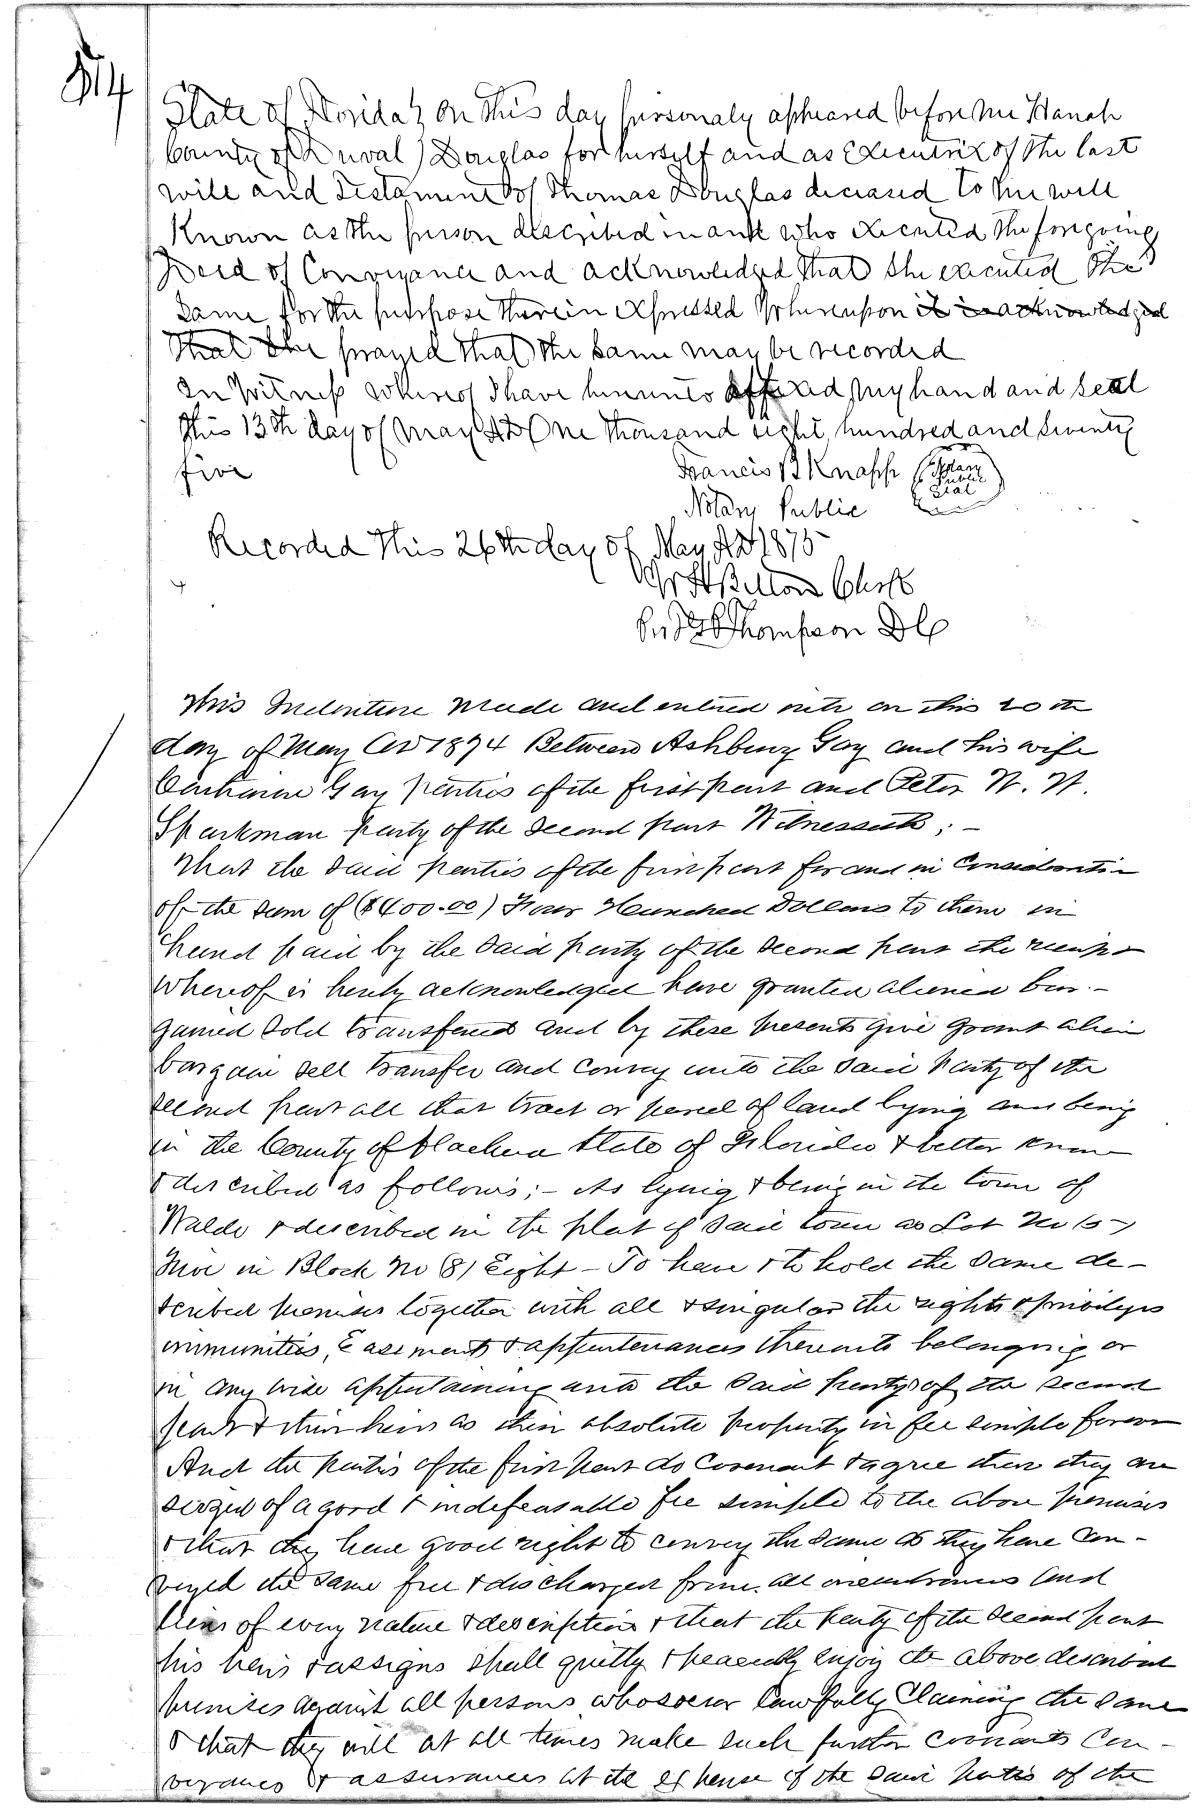 514
State of Florida } On this day personaly appeared before me Hanah
County of Duval } Douglas for herself and as Executrix of the last
will and Testament of Thomas Douglas deceased to me well
Known as the person described in and who executed the foregoing
Deed of Conveyance and acknowledged that she executed the
Same for the purpose therein expressed Whereupon it is acknowledged
that she prayed that the same may be recorded
In Witness whereof I have hereunto affixed my hand and seal
this 13th day of May AD One thousand eight hundred and seventy
five
Francis B Knapp
Notary Public Seal
Notary Public
Recorded this 26th day of May AD 1875
Clerk
Thompson DC
This Indenture made and entered into on this 20th
day of May AD 1874 Between Ashbury Gay and his wife
Catharine Gay parties of the first part and Peter W. W.
Sparkman party of the second part Witnesseth; -
That the said parties of the first part for and in Consideration
of the sum of ($400.00) Four Hundred Dollars to them in
hand paid by the said party of the second part the receipt
whereof is hereby acknowledged have granted aliened bar-
gained sold transfered and by these presents give grant alien
bargain sell transfer and convey unto the said party of the
second part all that tract or parcel of land lying and being
in the County of Alachua State of Florida & better known
& described as follows; - As lying & being in the town of
Waldo & described in the plat of said town as Lot No (5)
Five in Block No (8) Eight - To have & to hold the same de-
scribed premises together with all & singular the rights & privileges
immunities, Easements & appurtenances thereunto belonging or
in any wise appertaining unto the said party of the second
part & their heirs as their absolute property in fee simple forever
And the parties of the first part do covenant & agree that they are
seized of a good & indefeasable fee simple to the above premises
& that they have good right to convey the same as they have con-
veyed the same free & discharged from all incumbrances and
liens of every nature & description & that the party of the second part
his heirs & assigns shall quietly & peaceably enjoy the above described
premises against all persons whosoever lawfully Claiming the same
& that they will at all times make such further covenants Con-
veyances & assurances at the expense of the said parties of the